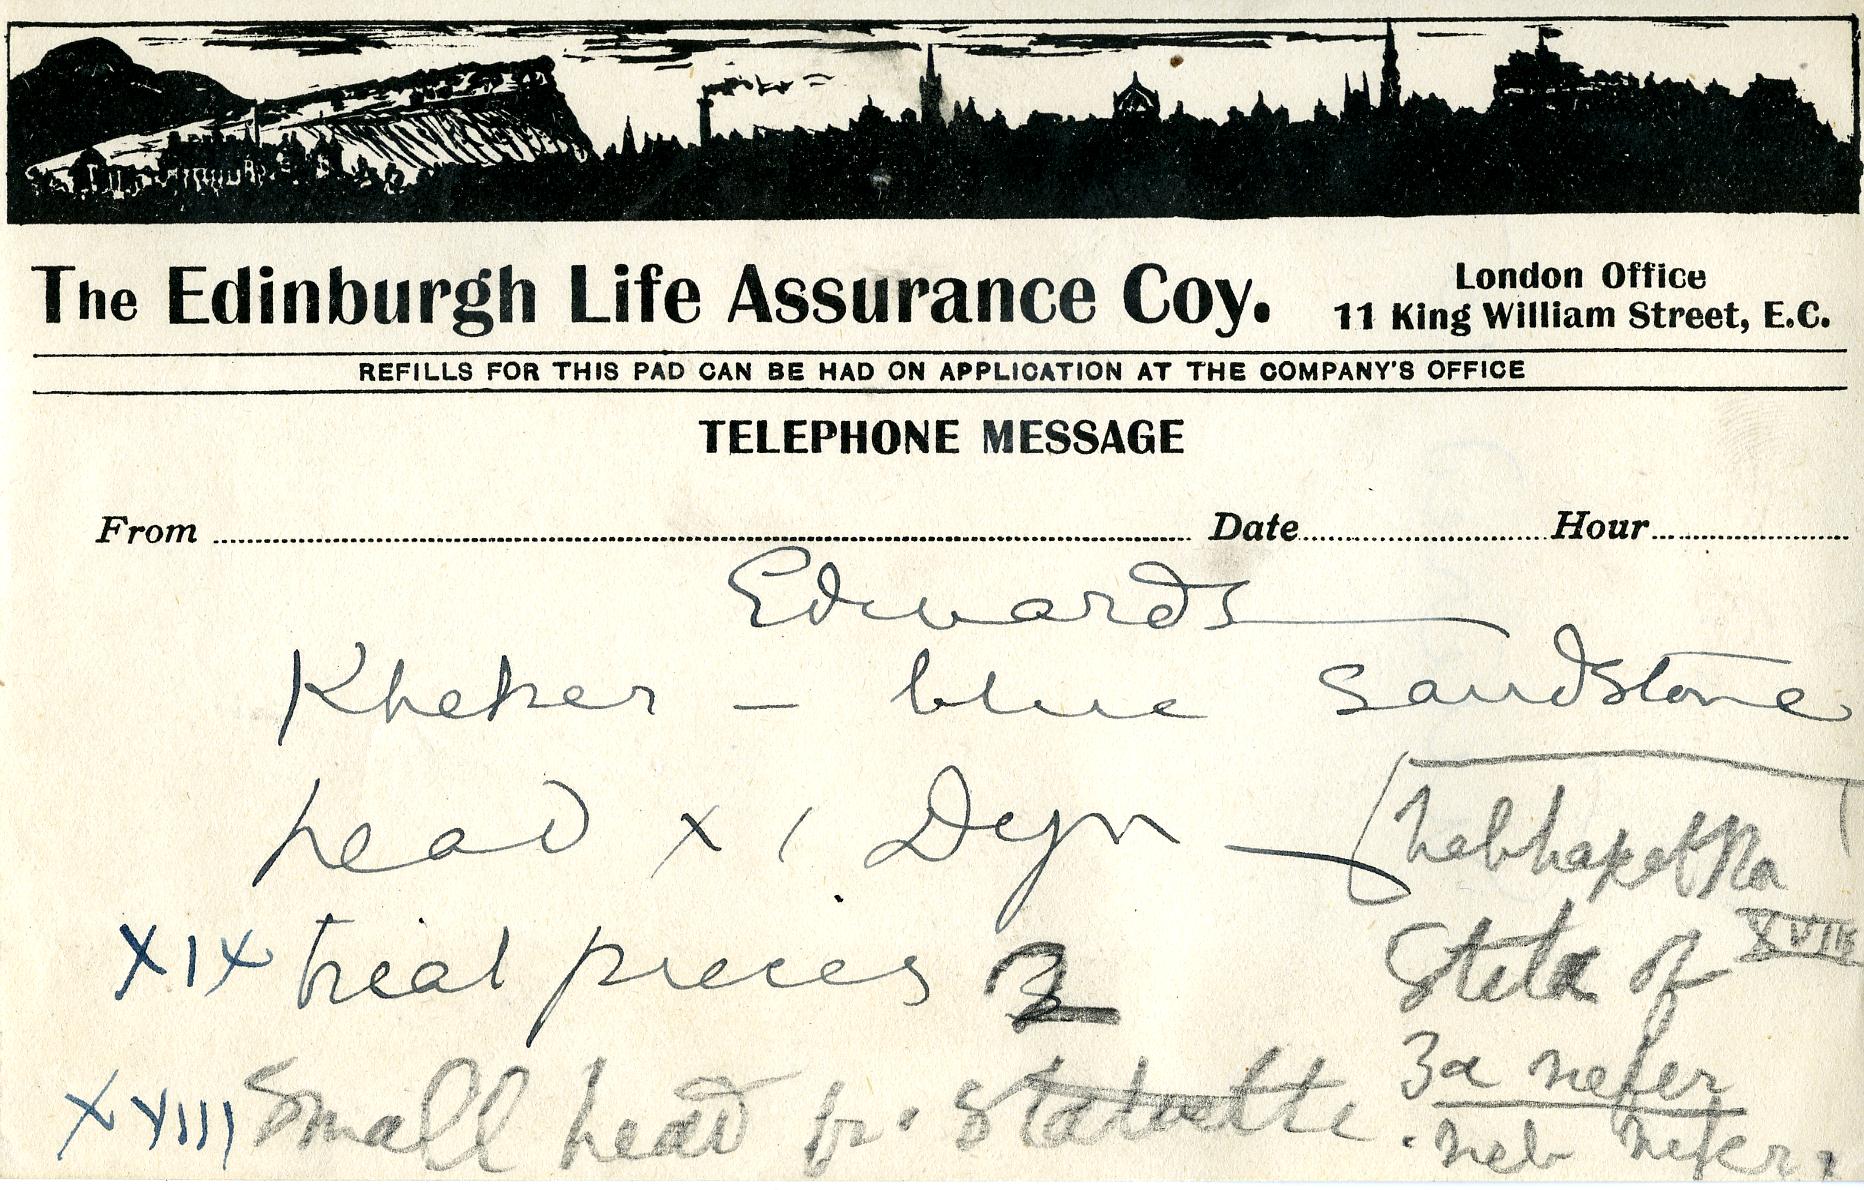 The Edinburgh Life Assurance Coy.
London Office
11 King William Street, E.C.
REFILLS FOR THIS PAD CAN BE HAD ON APPLICATION AT THE COMPANY'S OFFICE
TELEPHONE MESSAGE
From Date Hour
Edwards
Kheker – blue sandstone
head XI Dyn –
XIX trial pieces
XVIII Small head fr. statuette.
Stela of
nefer
neb nefer